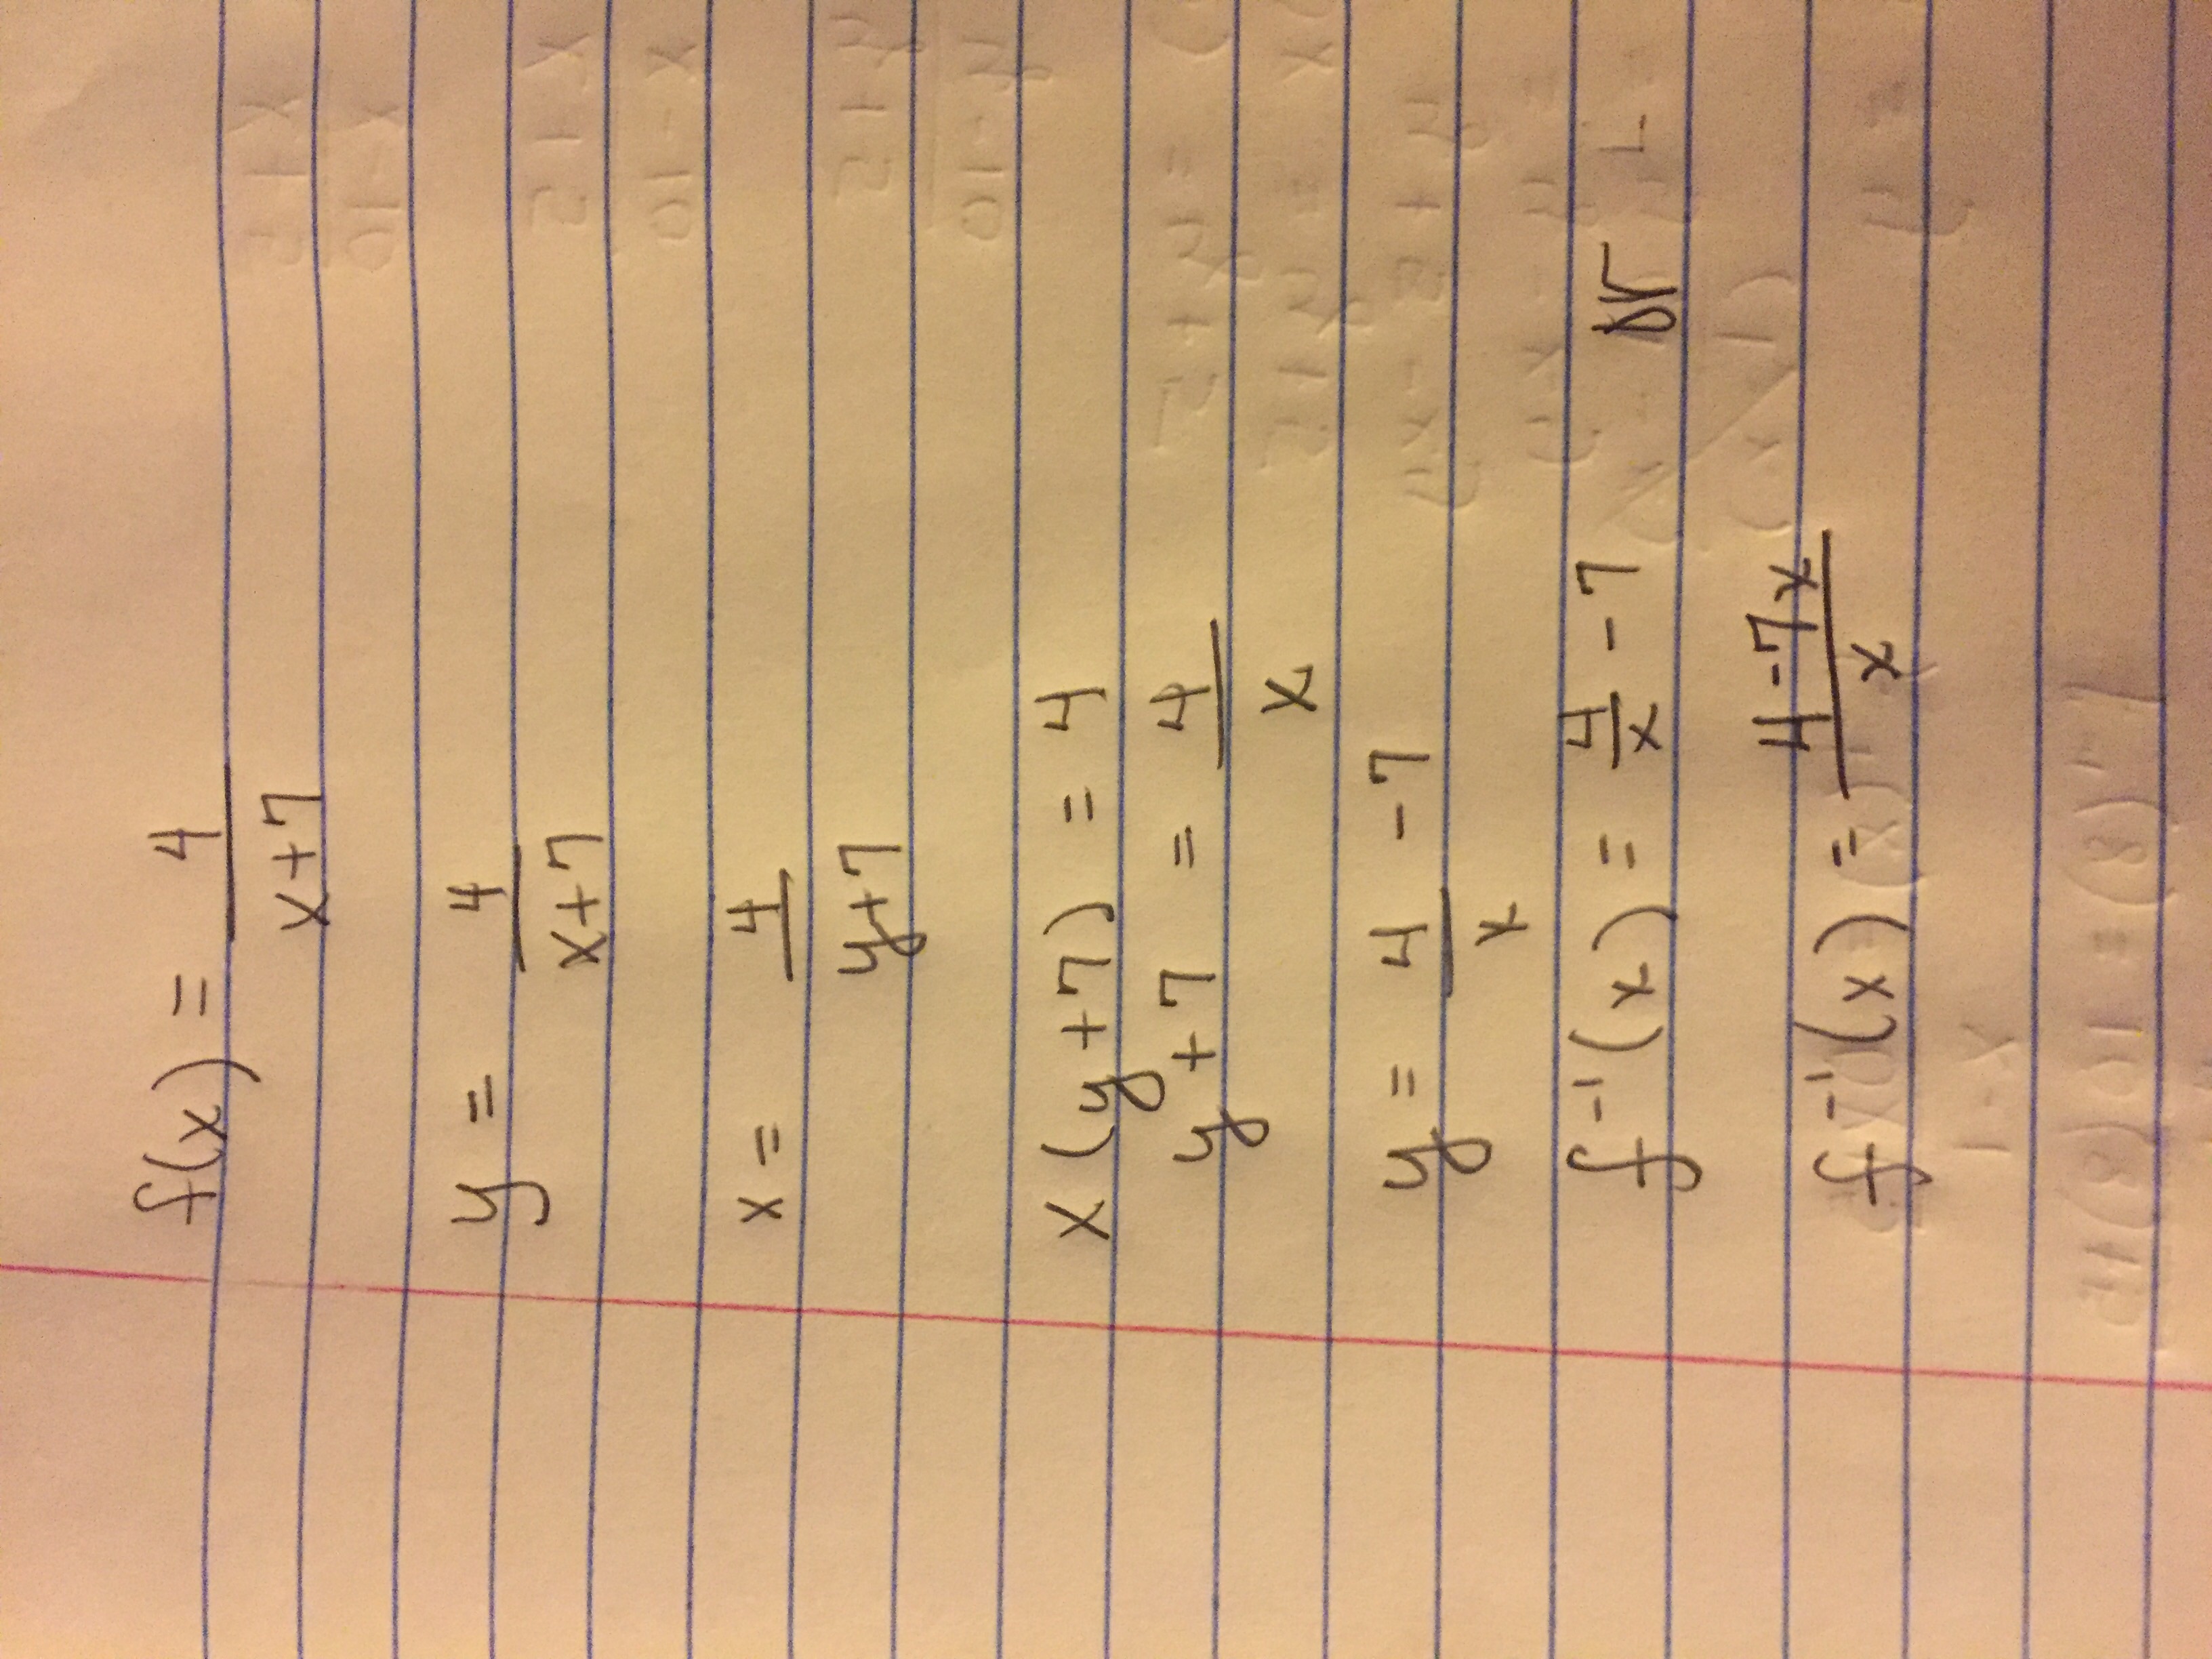 f(x) = 4
x+7
y = 4
x+7
x = 4
y+7
x(y+7) = 4
y+7 = 4
x
y = 4 - 7
x
f⁻¹(x) = 4/x - 7 or
f⁻¹(x) = 4-7x
x